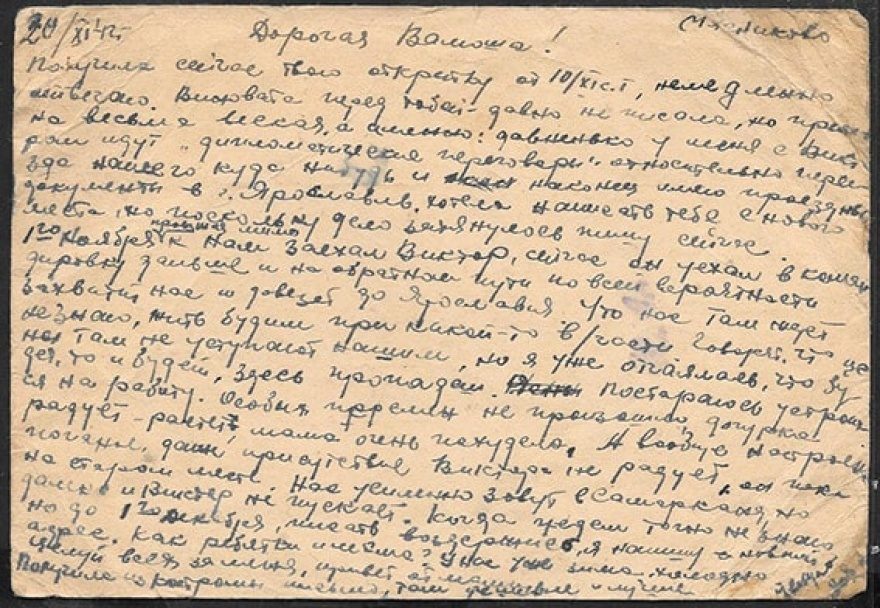 20/XI 42г. Мясниково
Дорогая Валюша!
Получила сейчас твою открытку от 10/XI с.г., немедленно
отвечаю. Виновата перед тобой - давно не писала, но причи-
на весьма веская, а именно: давненько у меня с Викто-
ром идут "дипломатические переговоры" относительно перее-
зда нашего куда-нибудь и наконец имею проездные
документы в г. Ярославль. Хотела написать тебе с нового
места, но поскольку дело затянулось пишу сейчас.
1го ноября проезжая мимо к нам заехал Виктор, сейчас он уехал в коман-
дировку дальше и на обратном пути по всей вероятности
захватит нас и довезет до Ярославля. Что нас там ждет
не знаю, жить будим при какой-то в/части. Говорят, что це-
ны там не уступают нашим, но я уже отчаялась, что бу-
дет, то и будет, здесь пропадаем. Постараюсь устроить-
ся на работу. Особых перемен не произошло, дочурка
радует - растет, мама очень похудела. А вообще настроение
поганое, даже присутствие Виктора не радует, он пока
на старом месте. Нас усиленно зовут в Самарканд, но
далеко и Виктор не пускает. Когда уедем точно не знаю,
но до 1го декабря, писать воздержись, я напишу с новый
адрес. Как ребятки и мама? У нас уже зима, холодно
Целуй всех за меня, привет от мамы.
Получила из Костромы письмо, там дешевле и лучше